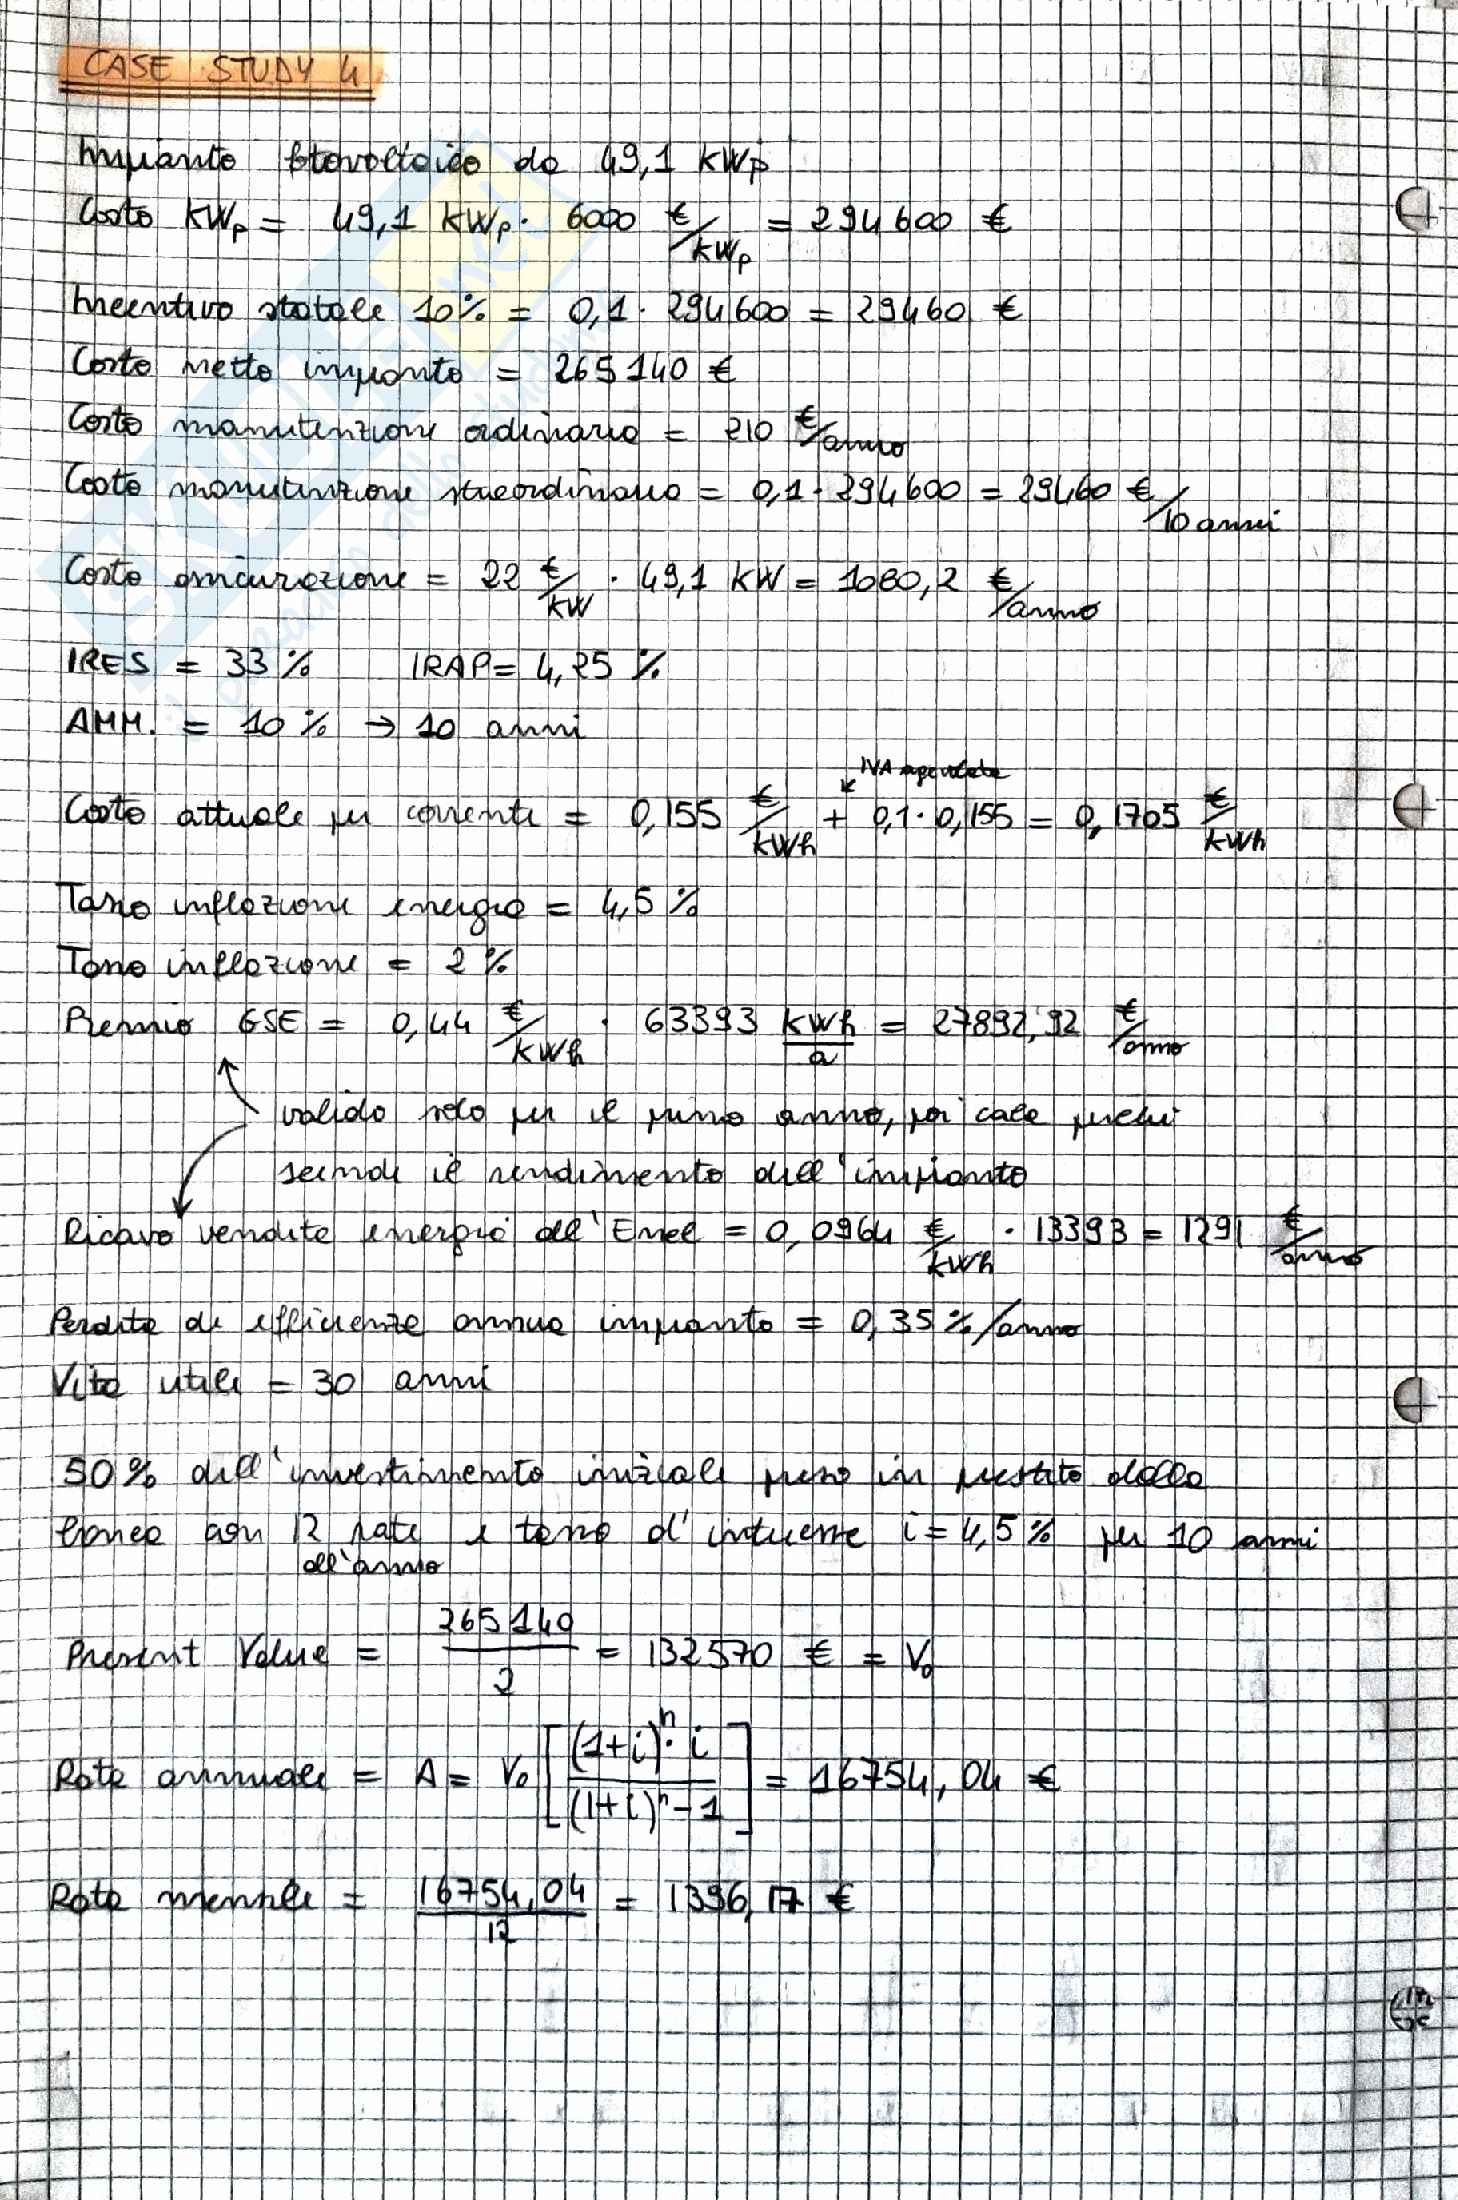 CASE STUDY 4
Impianto fotovoltaico da 49,1 KWp
Costo KWp = 49,1 KWp · 6000 €/kWp = 294600 €
Incentivo statale 10% = 0,1 · 294600 = 29460 €
Costo netto impianto = 265140 €
Costo manutenzione ordinaria = 210 €/anno
Costo manutenzione straordinaria = 0,1 · 294600 = 29460 €/10 anni
Costo assicurazione = 22 €/kW · 49,1 KW = 1080,2 €/anno
IRES = 33% IRAP = 4,25 %
AMM. = 10% → 10 anni
IVA agevolata
Costo attuale per corrente = 0,155 €/kWh + 0,1 · 0,155 = 0,1705 €/kWh
Tasso inflazione energia = 4,5 %
Tasso inflazione = 2 %
Premio GSE = 0,44 €/kWh · 63393 kWh/a = 27892,92 €/anno
valido solo per il primo anno, poi cala perchè
scende il rendimento dell'impianto
Ricavo vendita energia all'Enel = 0,0964 €/kWh · 13393 = 1291 €/anno
Perdita di efficienza annua impianto = 0,35 %/anno
Vita utile = 30 anni
50% dell'investimento iniziale preso in prestito dalla
banca con 12 rate e tasso d'interesse i = 4,5% per 10 anni
all'anno
Present Value = 265140/2 = 132570 € = V₀
Rata annuale = A = V₀ [(1+i)ⁿ · i / (1+i)ⁿ - 1] = 16754,04 €
Rata mensile = 16754,04/12 = 1396,17 €